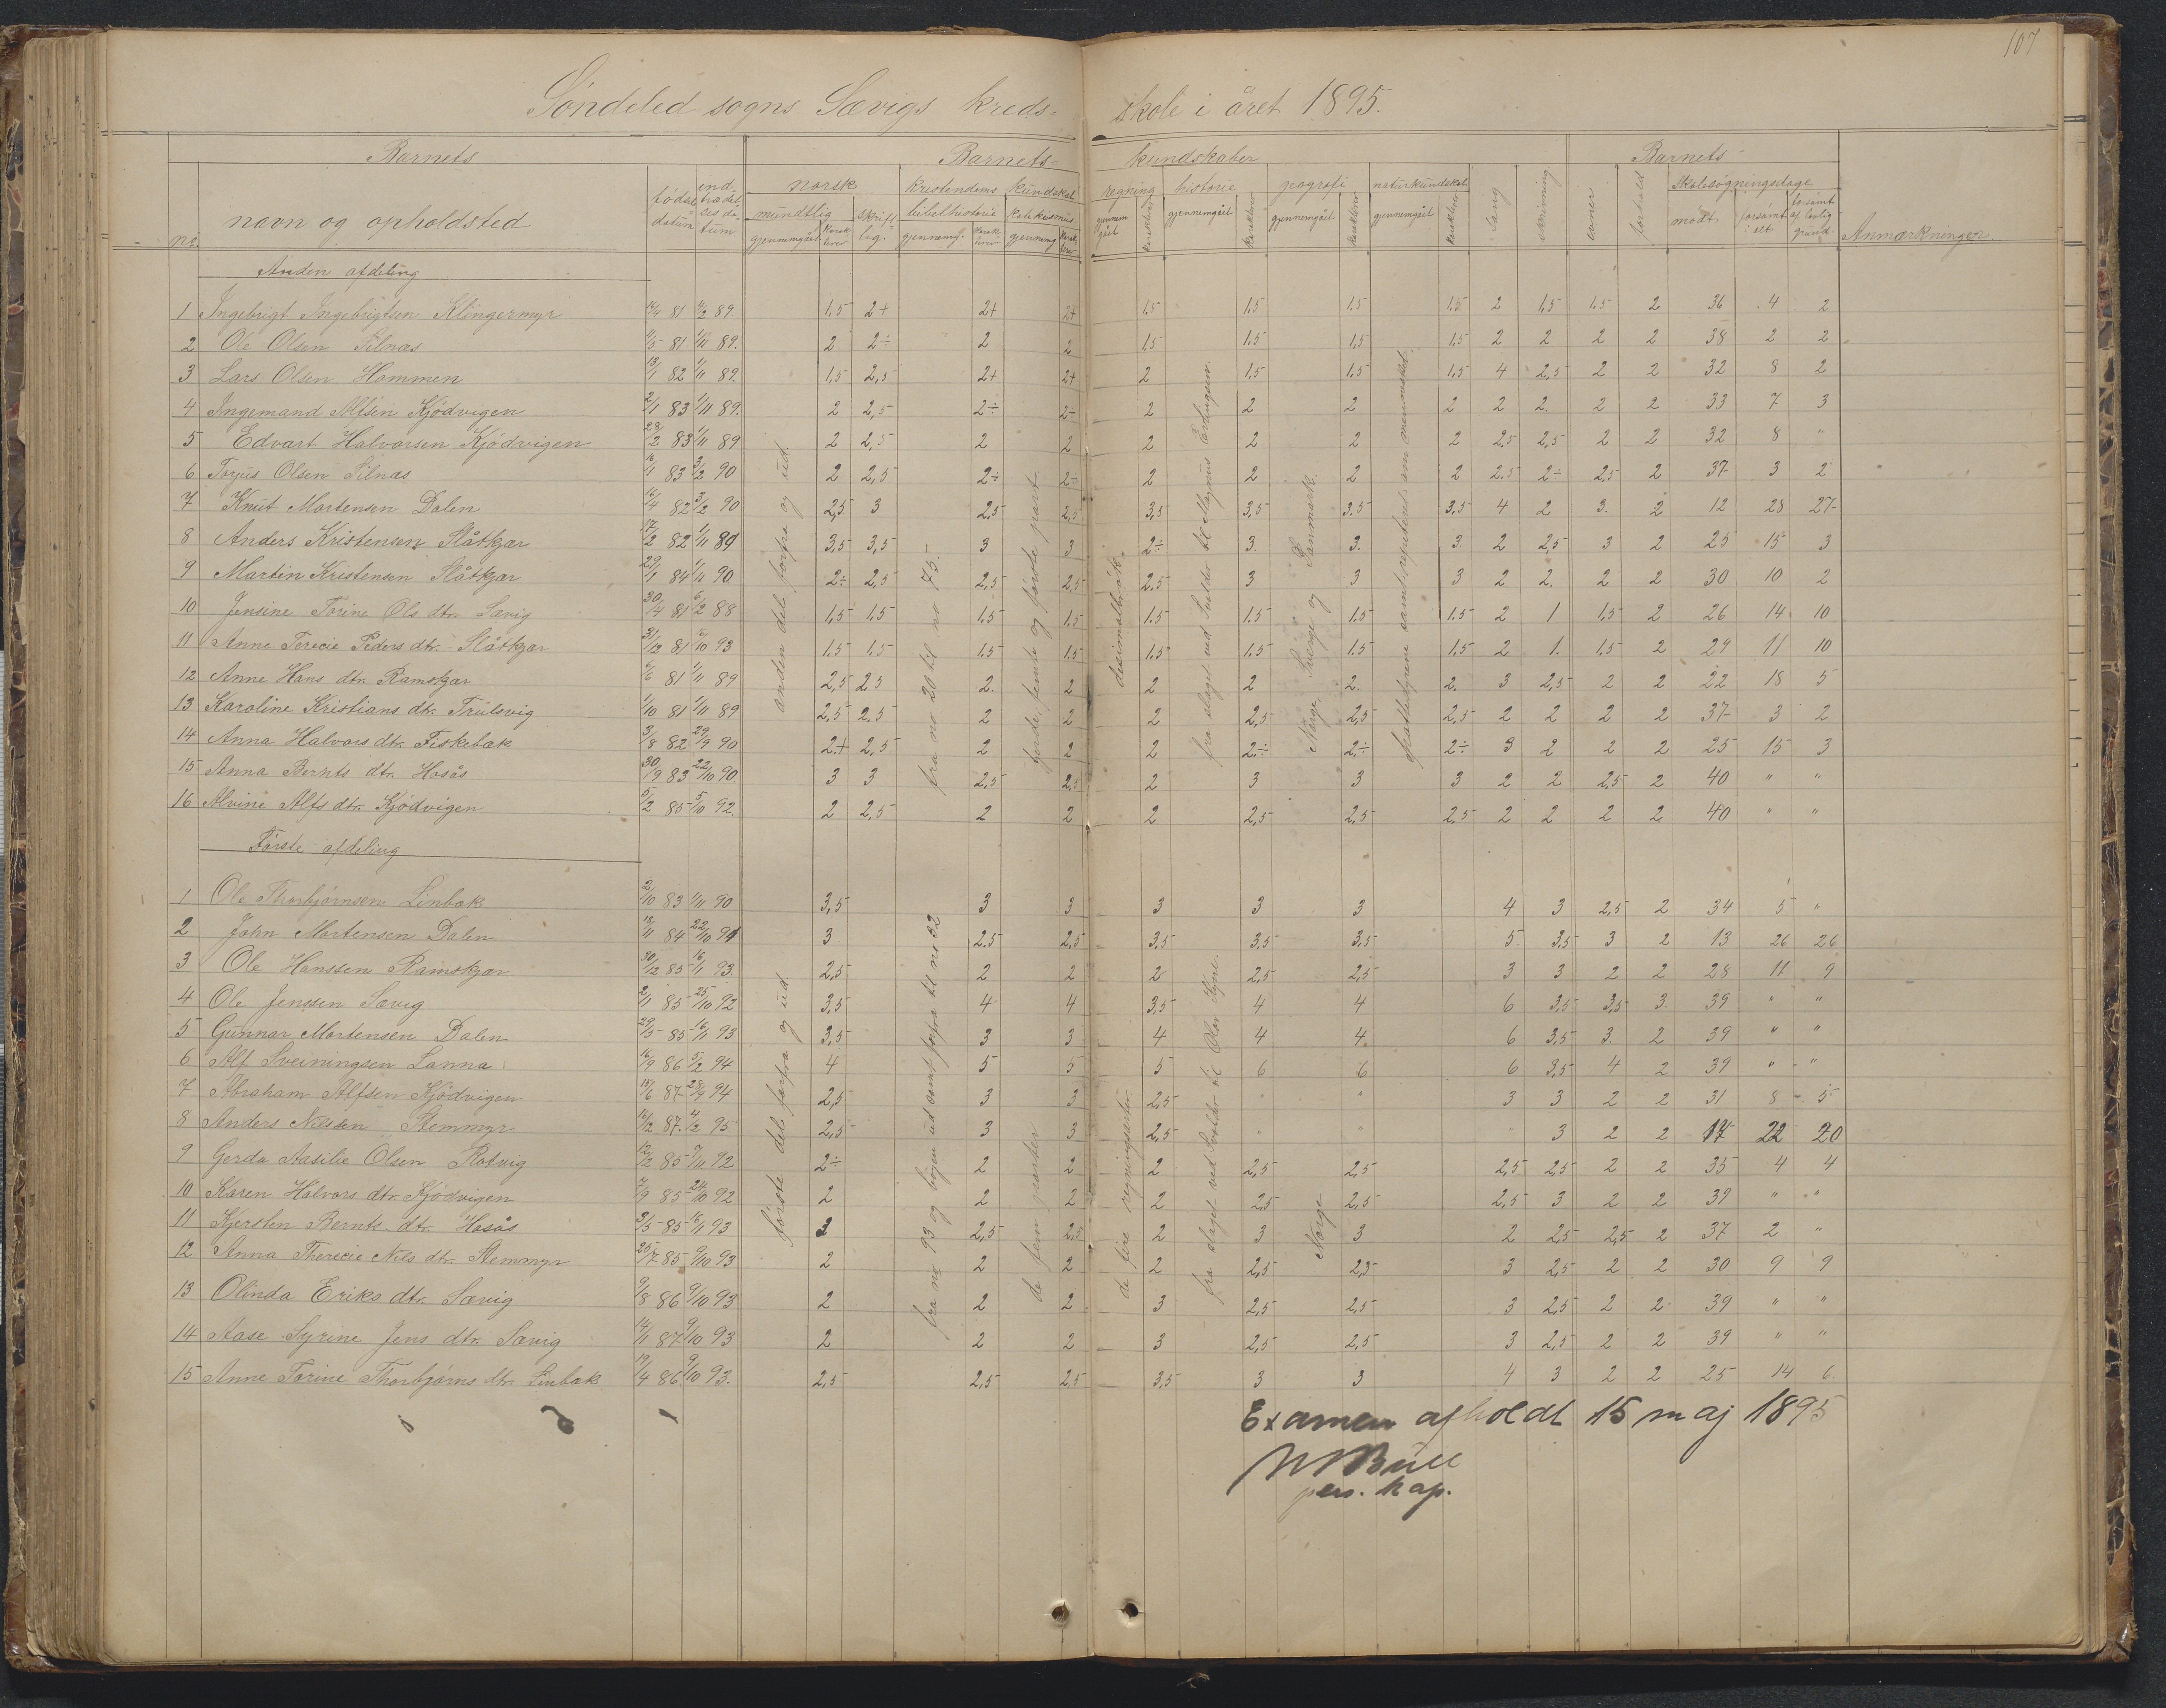 107
Söndeled sogns Sævigs kreds= skole i året 1895.
Barnets Barnets= kundskaber Barnets
no. navn og opholdsted födsels datum indtrædelses datum norsk mundtlig gjennemgået Karakterer skriftlig. kristendomskundskab bibelhistorie gjennemg. Karakterer katekismus gjennemg Karakterer regning gjennemgået Karakterer historie gjennemgået Karakterer geografi gjennemgået Karakterer naturkundskab gjennemgået Karakterer Sang Skrivning evner forhold Skolesögningsdage mödt forsömt i alt forsömt af lovlig grund Anmærkninger
Anden afdeling
1 Ingebrigt Ingebrigtsen Klingermyr 14/4 81 4/2 89. 1,5 2+ 2+ 2+ 1,5 1,5 1,5 1,5 2 1,5 1,5 2 36 4 2
2 Ole Olsen Silnæs 11/5 81 1/11 89. 2 2÷ 2 2 1,5 1,5 1,5 1,5 2 2 2 2 38 2 2
3 Lars Olsen Hommen 13/1 82 1/11 89. 1,5 2,5 2+ 2+ 2 1,5 1,5 1,5 4 2,5 2 2 32 8 2
4 Ingemand Alfsen Kjödvigen 2/1 83 1/11 89. 2 2,5 2÷ 2÷ 2 2 2 2 2 2. 2 2 33 7 3
5 Edvart Halvorsen Kjödvigen 28/2 83 1/11 89 2 2,5 2 2 2 2 2 2 2,5 2,5 2 2 32 8 "
6 Torjus Olsen Silnæs 16/1 83 3/2 90 2 2,5 2÷ 2÷ 2 2 2 2 2,5 2÷ 2,5 2 37 3 2
7 Knut Mortensen Dalen 16/4 82 3/2 90 2,5 3 2,5 2,5 3,5 3,5 3,5 3,5 4 2 3. 2 12 28 27
8 Anders Kristensen Slåtkjær 17/2 82 1/11 89 3,5 3,5 3 3 2÷ 3. 3. 3. 2 2,5 3 2 25 15 3
9 Martin Kristensen Slåtkjær 29/1 84 1/11 90 2÷ 2,5 2,5 2,5 2,5 3 3 3 2 2. 2 2 30 10 2
10 Jensine Torine Ols dtr. Sævig 30/4 81 6/2 88 1,5 1,5 1,5 1,5 1,5 1,5 1,5 1,5 2 1 1,5 2 26 14 10
11 Anne Terecie Peders dtr. Slåtkjær 31/12 81 2/10 93 1,5 1,5 1,5 1,5 1,5 1,5 1,5 1,5 2 1. 1,5 2 29 11 10
12 Anne Hans dtr. Ramskjær 6/6 81 1/11 89 2,5 2,5 2. 2 2 2 2. 2. 3 2,5 2 2 22 18 5
13 Karoline Kristians dtr. Trülsvig 1/10 81 1/11 89 2,5 2,5 2 2 2 2,5 2,5 2,5 2 2 2 2 37 3 2
14 Anna Halvors dtr. Fiskebæk 3/8 82 29/9 90 2+ 2,5 2 2 2 2÷ 2÷ 2÷ 3 2 2 2 25 15 3
15 Anna Bernts dtr. Hosås 30/9 83 22/10 90 3 3 2,5 2,5 2 3 3 3 2 2 2,5 2 40 " "
16 Alvine Alfs dtr. Kjödvigen 5/2 85 5/10 92. 2 2,5 2 2 2 2,5 2,5 2,5 2 2 2 2 40 " "
anden del forfra og ud.
fra no 20 til no 75.
fjerde, femte og første part
desimalbrök.
fra slaget ved Svolder til Magnus Erlingsen.
Norge, Sverige og Danmark.
Første afdeling
1 Ole Thorbjörnsen Linbæk 2/10 83 1/11 90 3,5 3 3 3 3 3 4 3 2,5 2 34 5 "
2 John Mortensen Dalen 18/11 84 22/10 91 3 2,5 2,5 3,5 3,5 3,5 5 3,5 3 2 13 26 26
3 Ole Hanssen Ramskjær 30/12 85 16/1 93. 2,5 2 2 2 2,5 2,5 3 3 2 2 28 11 9
4 Ole Jenssen Sævig 2/11 85 25/10 92 3,5 4 4 3,5 4 4 6 3,5 3,5 3. 39 " "
5 Gunnar Mortensen Dalen 29/5 85 16/1 93 3,5 3 3 4 4 4. 6 3,5 3. 2 39 " "
6 Alf Sveiningsen Lanna 16/9 86 5/2 94 4 5 5 5 6 6 6 3,5 4 2 39 " "
7 Abraham Alfsen Kjödvigen 15/6 87 28/9 94 2,5 3 3 2,5 " " 3 3 2 2 31 8 5
8 Anders Nilssen Stemmyr 16/12 87. 4/2 95 2,5 3 3 2,5 " " " 3 2 2 17 22 20
9 Gerda Aasilie Olsen Rotvig 12/2 85 7/11 92 2÷ 2 2 2 2,5 2,5 2,5 2,5 2 2 35 4 4
10 Karen Halvors dtr. Kjödvigen 7/9 85 24/10 92 2 2 2 2 2,5 2,5 2,5 3 2 2 39 " "
11 Kjersten Bernts dtr. Hosås 3/5 85 16/1 93 3 2,5 2,5 2 3 3 2 2,5 2,5 2 37 2 "
12 Anna Therecie Nils dtr. Stemmyr 25/7 85 9/10 93 2 2 2 2 2,5 2,5 3 2,5 2 2 30 9 9
13 Olinda Eriks dtr. Sævig 9/8 86 9/10 93 2 2 2 3 2,5 2,5 3 2,5 2 2 39 " "
14 Aase Syrine Jens dtr. Sævig 14/11 87 9/10 93 2 2 2 3 2,5 2,5 3 2,5 2 2 39 " "
15 Anne Torine Thorbjörns dtr. Linbæk 19/4 86 9/10 93. 2,5 2,5 2,5 3,5 3 3 4 3 2 2 25 14 6.
første del forfra og ud.
de fem parter
de fire regningsarter
fra slaget ved Svolder til Olav Kyrre.
Norge
Examen afholdt 15 maj 1895
Bull
pers. kap.